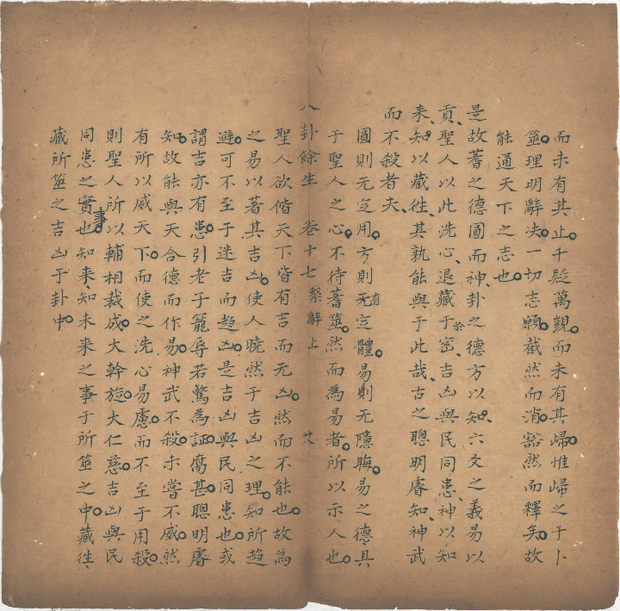 而未有其止千疑萬覬而未有其歸惟歸之于卜
筮理明辭決一切志願截然而消豁然而釋矣故
能通天下之志也
是故蓍之德圓而神卦之德方以知六爻之義易以
貢聖人以此洗心退藏于密吉凶與民同患神以知
来知以藏徃其孰能與于此哉古之聰明睿知神武
而不殺者夫
圓則无定用方則有定體易則无隱晦易之德具
于聖人之心不待蓍筮然而為易者所以示人也
八卦餘生 卷十七繫辭上 廿
聖人欲偕天下皆有吉而无凶然而不能也故為
之易以著其吉凶使人曉然于吉凶之理知所趋
避可不至于迷吉而趋凶是吉凶與民同患也或
謂吉亦有患引老子寵辱若驚為証腐甚聰明睿
知故能與天合德而作易神武不殺未嘗不威然
有所以威天下而使之洗心易慮而不至于用殺
則聖人所以輔相裁成大幹旋大仁慈吉凶與民
同患之實事也知来知未来之事于所筮之中藏徃
藏所筮之吉凶于卦中